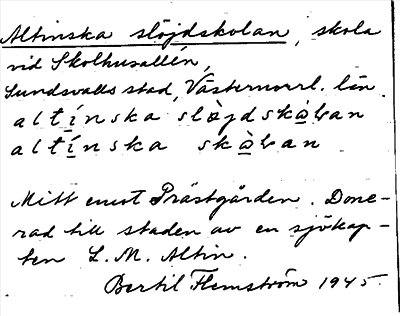 Altinska slöjdskolan, skola
vid Skolhusallén,
Sundsvalls stad, Västernorrl. län.
altínska slöjdskòlan
altínska skòlan
Mitt emot Prästgården. Done-
rad till staden av en sjökap-
ten L. M. Altin.
Bertil Flemström 1945.